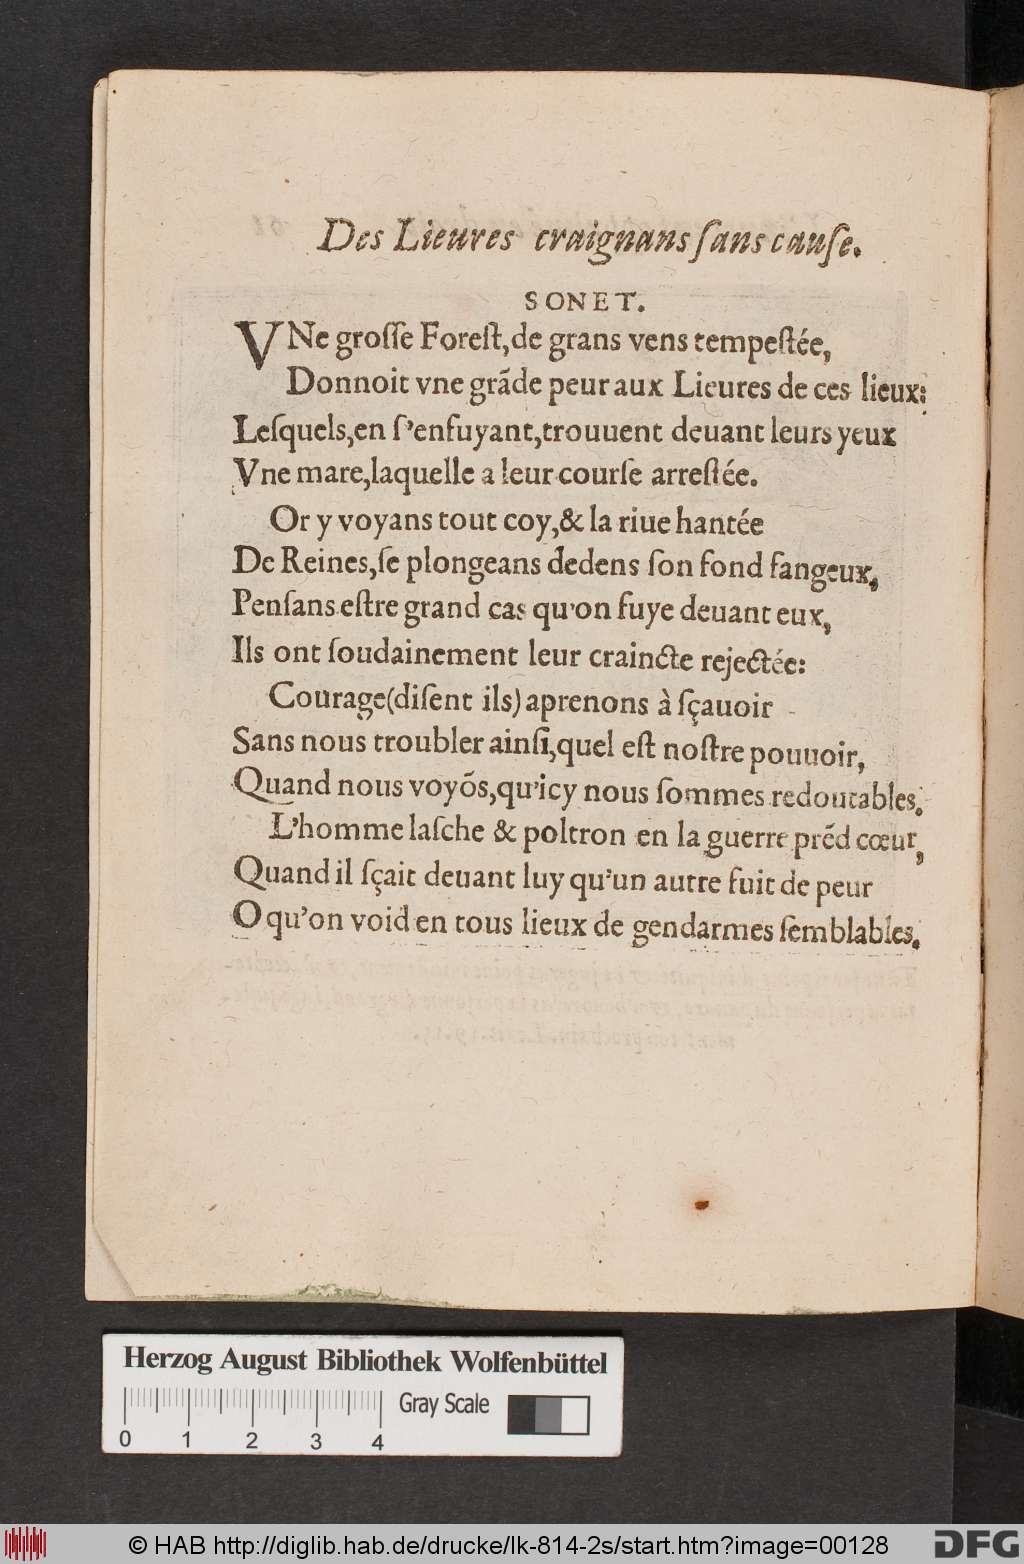 Des Lieures craignans ſans cauſe.
SONET.
VNe groſſe Foreſt, de grans vens tempeſtée,
Donnoit vne grãde peur aux Lieures de ces lieux:
Leſquels, en ſ'enfuyant, trouuent deuant leurs yeux
Vne mare, laquelle a leur courſe arreſtée.
Or y voyans tout coy, & la riue hantée
De Reines, ſe plongeans dedens ſon fond fangeux,
Penſans eſtre grand cas qu'on fuye deuant eux,
Ils ont ſoudainement leur craincte rejectée:
Courage (diſent ils) aprenons à ſçauoir
Sans nous troubler ainſi, quel eſt noſtre pouuoir,
Quand nous voyõs, qu'icy nous ſommes redoutables.
L'homme laſche & poltron en la guerre prẽd cœur,
Quand il ſçait deuant luy qu'un autre fuit de peur
O qu'on void en tous lieux de gendarmes ſemblables.
Herzog August Bibliothek Wolfenbüttel
Gray Scale
0 1 2 3 4
© HAB http://diglib.hab.de/drucke/lk-814-2s/start.htm?image=00128
DFG